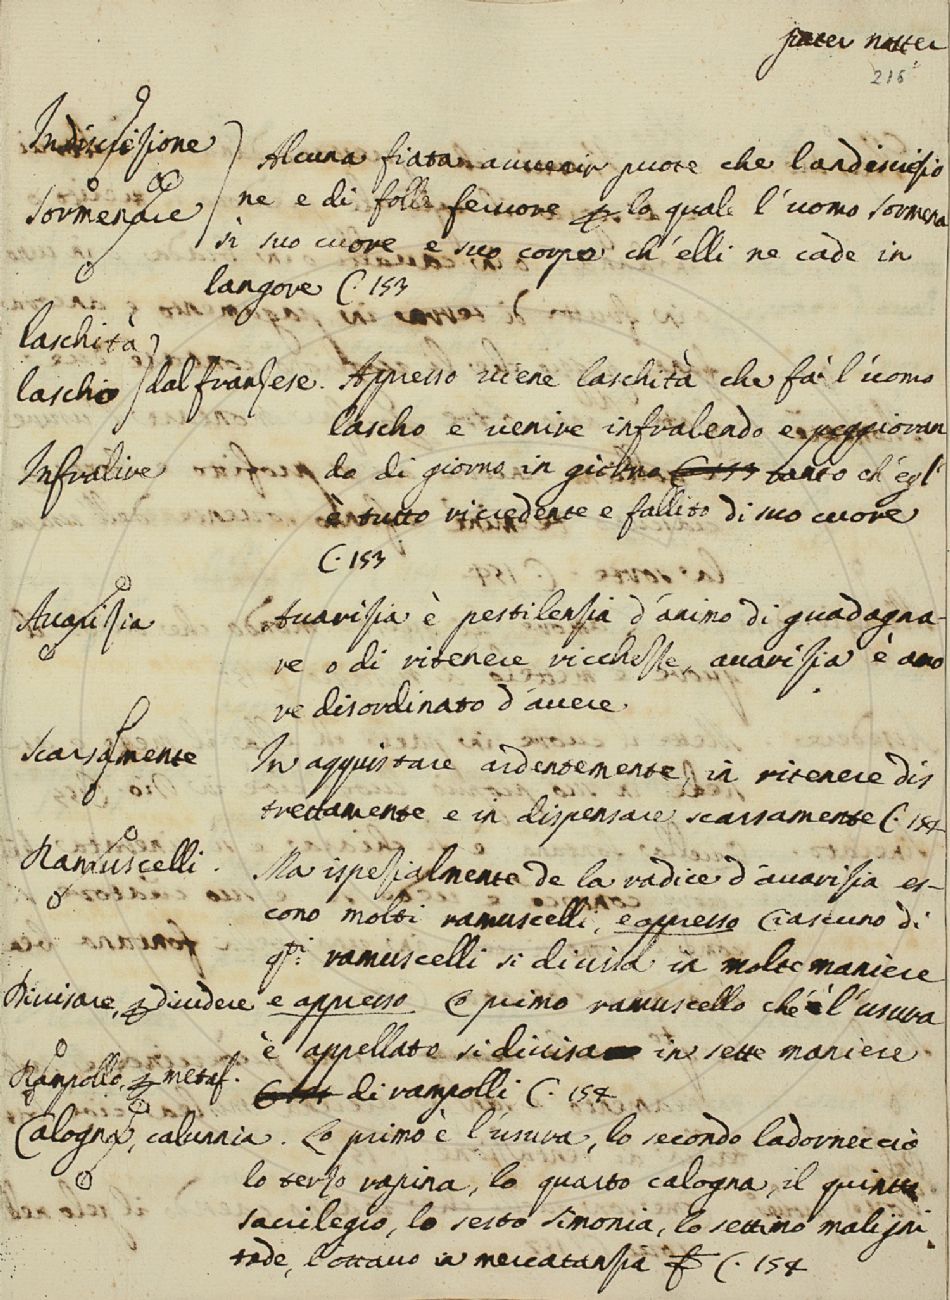 pater noster
216
Indiscrezione
Alcuna fiata avvenir puote che landiscrezio
Sormenare
ne e di folle fervore per lo quale l'uomo sormena
si suo cuore e suo corpo ch'elli ne cade in
langore C. 153
laschità
laschio dal franzese. Appresso viene laschità che fà l'uomo
lascho e venire infralendo e peggioran
Infralire
do di giorno in giorno C 153 tanto ch'egl'
è tutto riccedente e fallito di suo cuore
C. 153
Avarizia
Avarizia è pestilenzia d'animo di guadagna-
re o di ritenere ricchezze, avarizia è amo
re disordinato d'avere
Scarsamente
In acquistare ardentemente, in ritenere dis
trettamente e in dispensare scarsamente C. 154
Ramuscelli.
Ma ispezialmente de la radice d'avarizia es-
cono molti ramuscelli, e appresso Ciascuno di
qti ramuscelli si divisa in molte maniere
Divisare, per dividere e appresso Lo primo ramuscello ch'è l'usura
è appellato si divisa in sette maniere
Rampollo, per metaf.
di rampolli C. 154
Calogna, calunnia. Lo primo è l'usura, lo secondo ladorneccio
lo terzo rapina, lo quarto calogna, il quinto
sacrilegio, lo sesto simonia, lo settimo maligni
tade, l'ottavo in mercatanzia C. 154